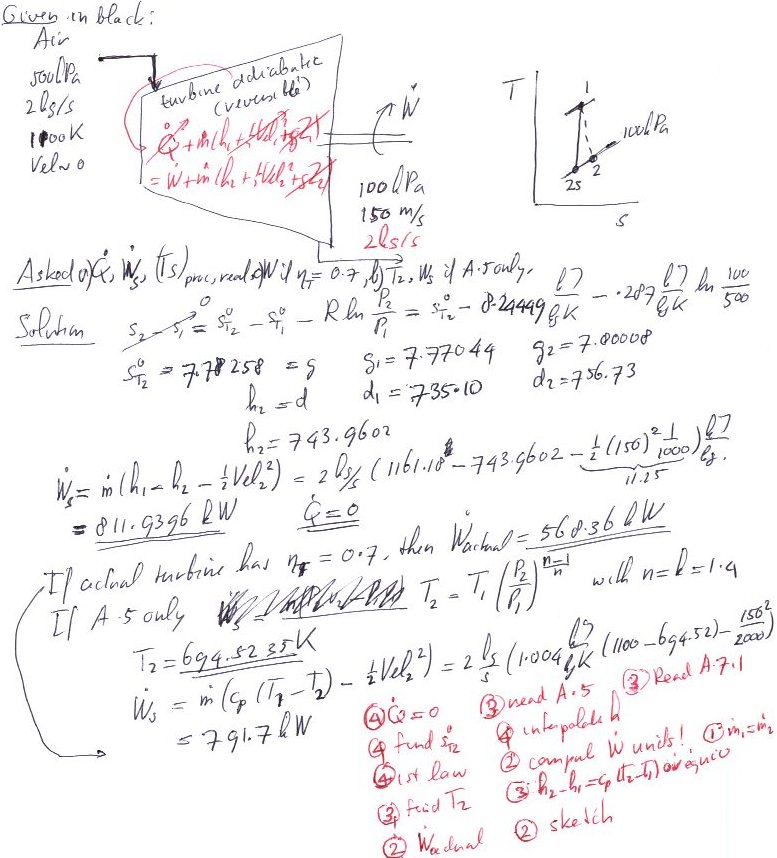 Given in black:
Air
500kPa
2kg/s
1100K
Vel≈0
turbine adiabatic
(reversible)
Q̇ + ṁ(h₁ + ½Vel₁² + gZ₁)
= Ẇ + ṁ(h₂ + ½Vel₂² + gZ₂)
Ẇ
100kPa
150 m/s
2kg/s
T
1
100kPa
2s
2
s
Asked a) Q̇, Ẇs, (Ts) proc, real, Ẇ if ηT = 0.7, b) T₂, Ws if A.5 only.
Solution s₂ - s₁ = s°T₂ - s°T₁ - R ln P₂/P₁ = s°T₂ - 8.24449 kJ/kgK - .287 kJ/kgK ln 100/500
0
s°T₂ = 7.78258 = g g₁ = 7.77044 g₂ = 7.80008
h₂ = d d₁ = 735.10 d₂ = 756.73
h₂ = 743.9602
Ẇs = ṁ(h₁ - h₂ - ½Vel₂²) = 2 kg/s (1161.18 - 743.9602 - ½(150)² 1/1000) kJ/kg.
11.25
= 811.9396 kW Q̇ = 0
If actual turbine has ηT = 0.7, then Ẇactual = 568.36 kW
If A.5 only T₂ = T₁ (P₂/P₁)^(n-1)/n with n = k = 1.4
T₂ = 694.5235K
Ẇs = ṁ(cp (T₁ - T₂) - ½Vel₂²) = 2 kg/s (1.004 kJ/kgK (1100 - 694.52) - 150²/2000)
= 791.7kW
④ Q̇ = 0 ③ read A.5 ③ Read A.7.1
④ find s°T₂ ④ interpolate h
④ 1st law ② comput Ẇ units! ① ṁ₁ = ṁ₂
③ find T₂ ③ h₂ - h₁ = cp(T₂ - T₁) or equiv
② Ẇactual ② sketch